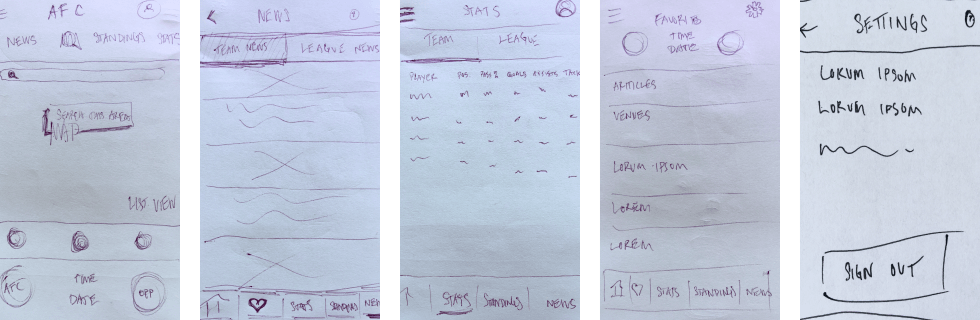 AFC
NEWS STANDINGS STATS
SEARCH THIS AREA
MAP
LIST VIEW
AFC TIME DATE OPP
NEWS
TEAM NEWS LEAGUE NEWS
STATS STANDINGS NEWS
STATS
TEAM LEAGUE
PLAYER POS GOALS ASSISTS
STATS STANDINGS NEWS
FAVORITE
TIME
DATE
ARITICLES
VENUES
LORUM IPSOM
LOREM
LOREM
STATS STANDINGS NEWS
SETTINGS
LORUM IPSOM
LORUM IPSOM
SIGN OUT